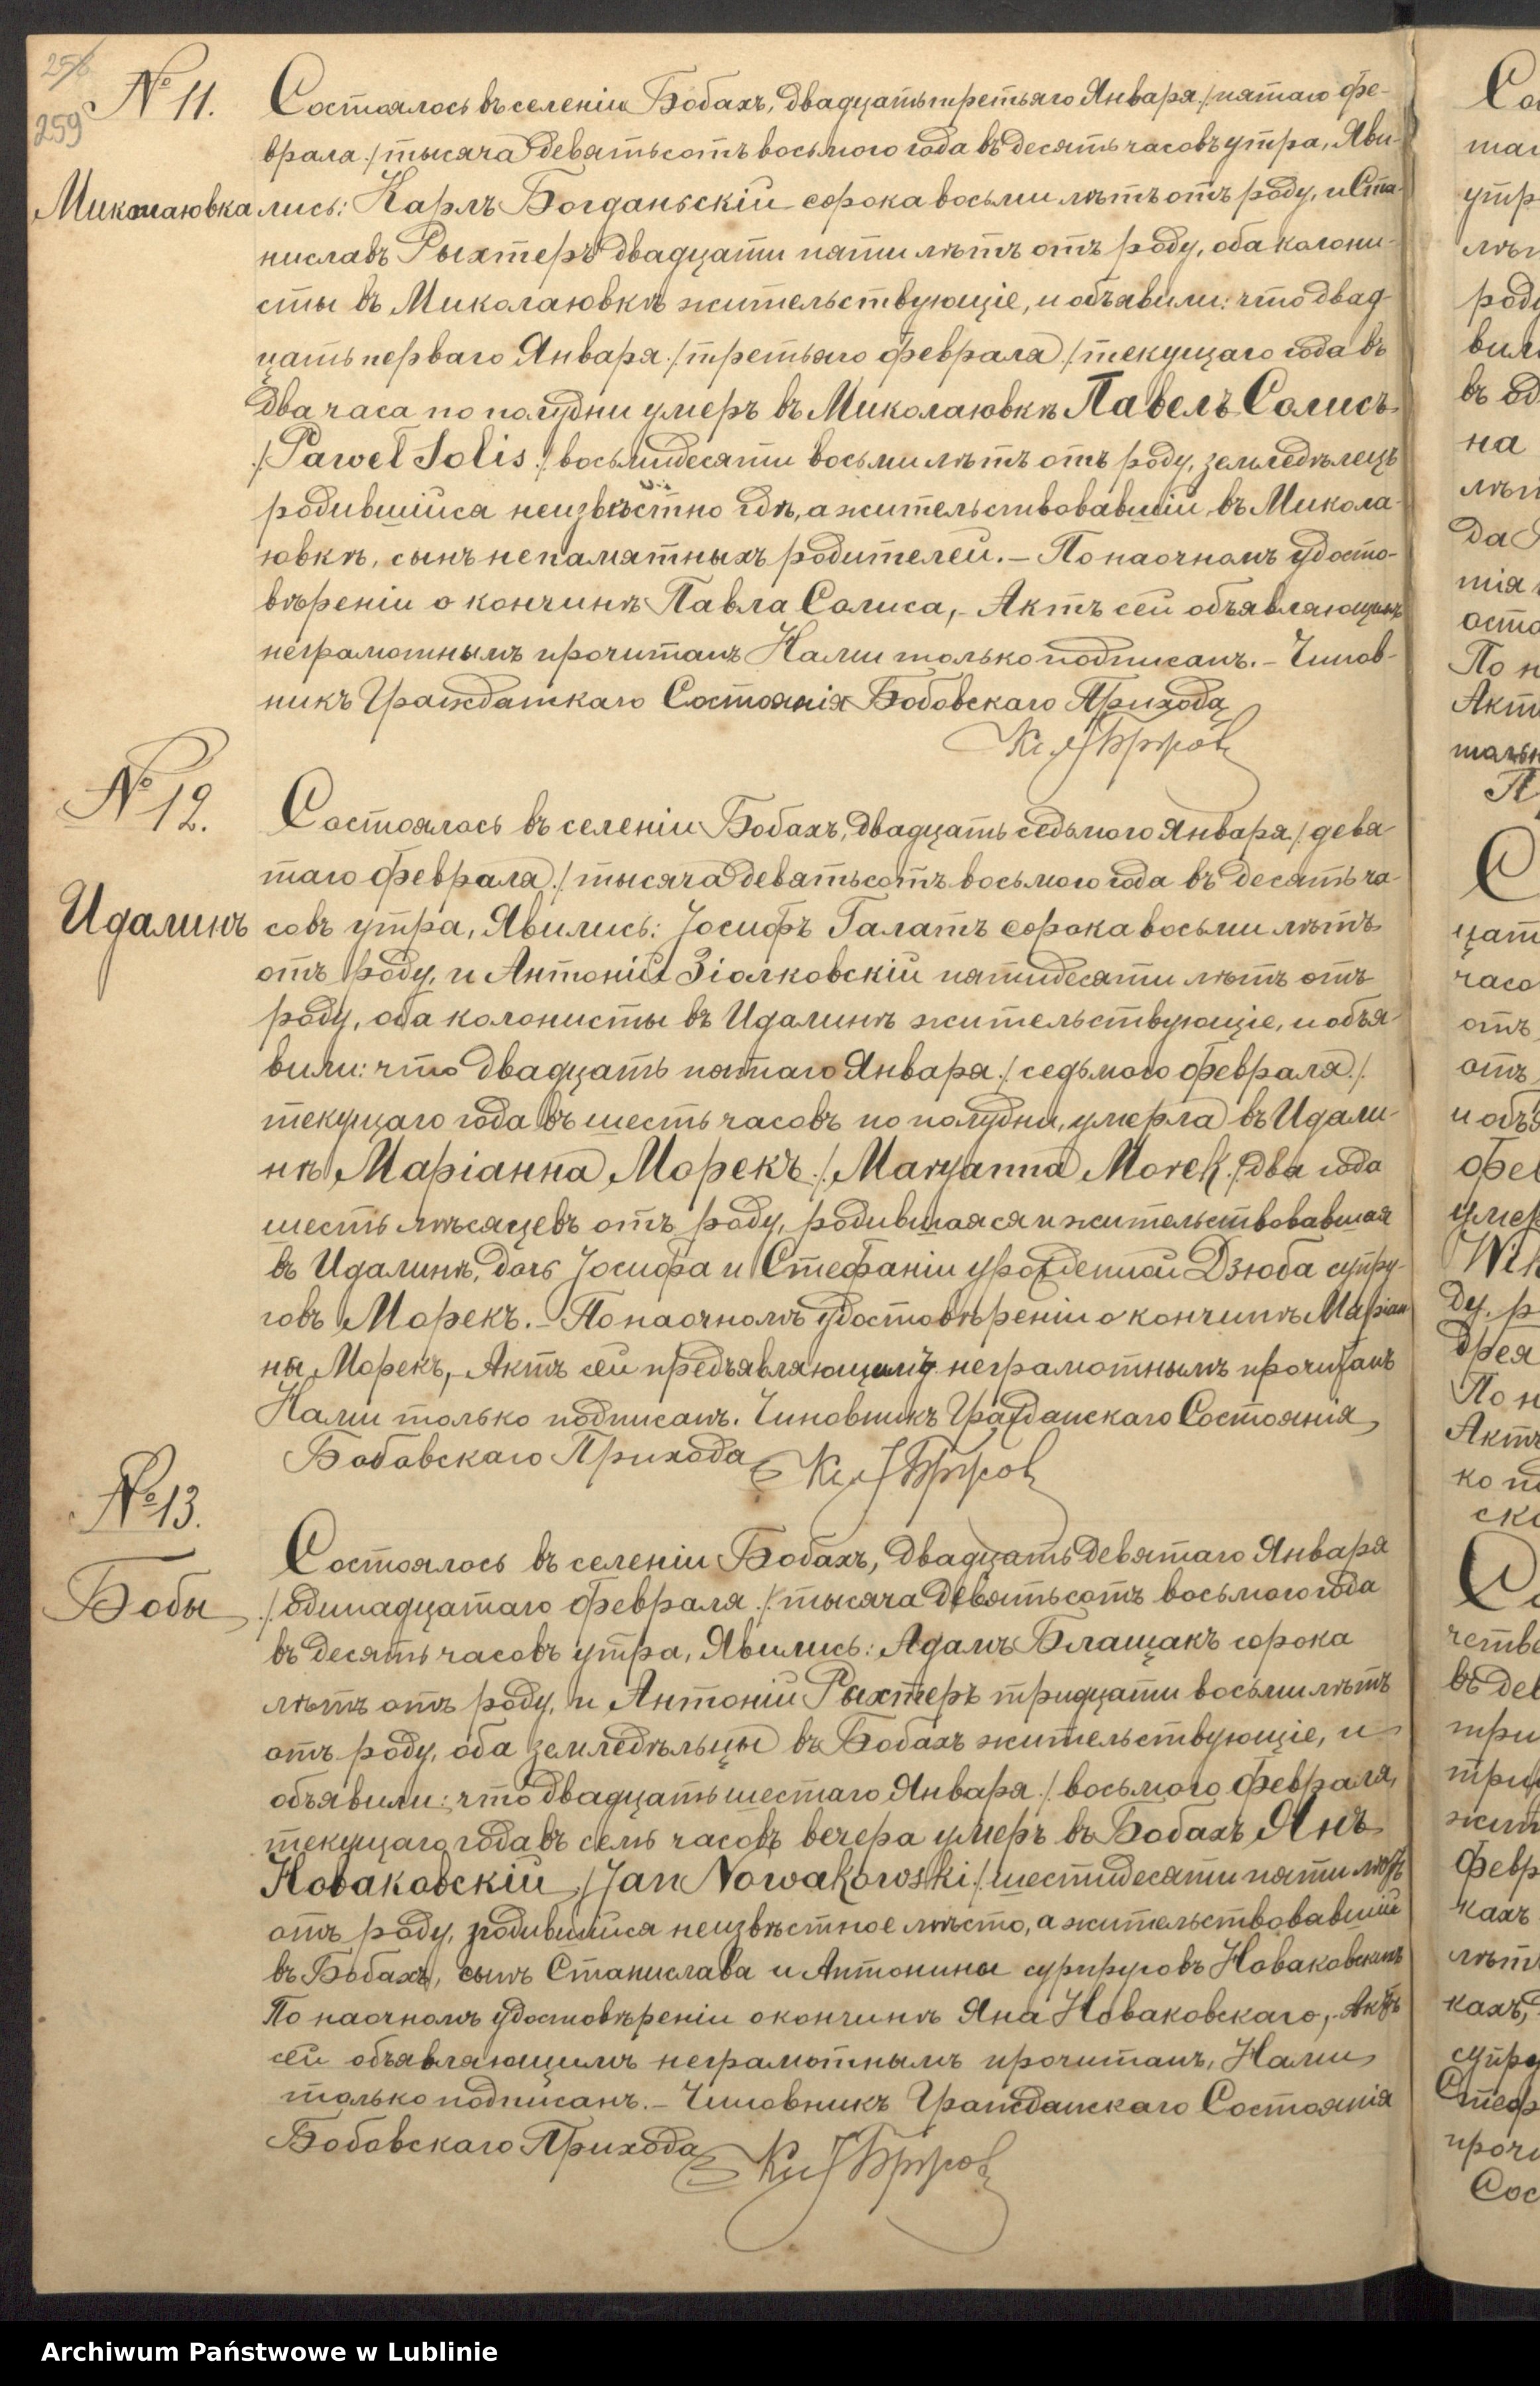 258
259
№ 11.
Миколаювка
Состоялось въ селеніи Бобахъ, двадцать третьяго Января /пятаго Фе-
враля./ тысяча девятьсотъ восьмого года въ десять часовъ утра, Яви-
лись: Карлъ Богданьскій сорока восьми лѣтъ отъ роду, и Ста-
ниславъ Рыхтеръ двадцати пяти лѣтъ отъ роду, оба колони-
сты въ Миколаювкѣ жительствующіе, и объявили: что двад-
цать перваго Января /третьяго Февраля/ текущаго года въ
два часа по полудни умеръ въ Миколаювкѣ Павелъ Солисъ
/Paweł Solis./ восьмидесяти восьми лѣтъ отъ роду, земледѣлецъ
родившійся неизвѣстно гдѣ, а жительствовавшій въ Микола-
ювкѣ, сынъ непамятныхъ родителей.- По наочномъ удосто-
вѣреніи о кончинѣ Павла Солиса,- Актъ сей объявляющимъ
неграмотнымъ прочитанъ Нами только подписанъ.- Чинов-
никъ Гражданскаго Состоянія Бобовскаго Прихода
№ 12.
Идалинъ
Состоялось въ селеніи Бобахъ, двадцать седьмого Января /девя-
таго Февраля./ тысяча девятьсотъ восьмого года въ десять ча-
совъ утра, Явились: Іосифъ Галатъ сорока восьми лѣтъ
отъ роду, и Антоній Зіолковскій пятидесяти лѣтъ отъ
роду, оба колонисты въ Идалинѣ жительствующіе, и объя-
вили: что двадцать пятаго Января /седьмого Февраля./
текущаго года въ шесть часовъ по полудни, умерла въ Идали-
нѣ Маріанна Морекъ /Maryanna Morek./ два года
шесть мѣсяцевъ отъ роду, родившаяся и жительствовавшая
въ Идалинѣ, дочь Іосифа и Стефаніи урожденной Дзюба супру-
говъ Морекъ.- По наочномъ удостовѣреніи о кончинѣ Маріан-
ны Морекъ,- Актъ сей предъявляющимъ неграмотнымъ прочитанъ
Нами только подписанъ. Чиновникъ Гражданскаго Состоянія
Бобовскаго Прихода
№ 13.
Бобы
Состоялось въ селеніи Бобахъ, двадцать девятаго Января
/одинадцатаго Февраля./ тысяча девятьсотъ восьмого года
въ десять часовъ утра, Явились: Адамъ Блащакъ сорока
лѣтъ отъ роду, и Антоній Рыхтеръ тридцати восьми лѣтъ
отъ роду, оба земледѣльцы въ Бобахъ жительствующіе, и
объявили: что двадцать шестаго Января /восьмого Февраля,
текущаго года въ семь часовъ вечера умеръ въ Бобахъ Янъ
Новаковскій /Jan Nowakowski./ шестидесяти пяти лѣтъ
отъ роду, родившійся неизвѣстное мѣсто, а жительствовавшій
въ Бобахъ, сынъ Станислава и Антонины супруговъ Новаковскихъ
По наочномъ удостовѣреніи о кончинѣ Яна Новаковскаго,- Актъ
сей объявляющимъ неграмотнымъ прочитанъ, Нами
только подписанъ.- Чиновникъ Гражданскаго Состоянія
Бобовскаго Прихода
Archiwum Państwowe w Lublinie